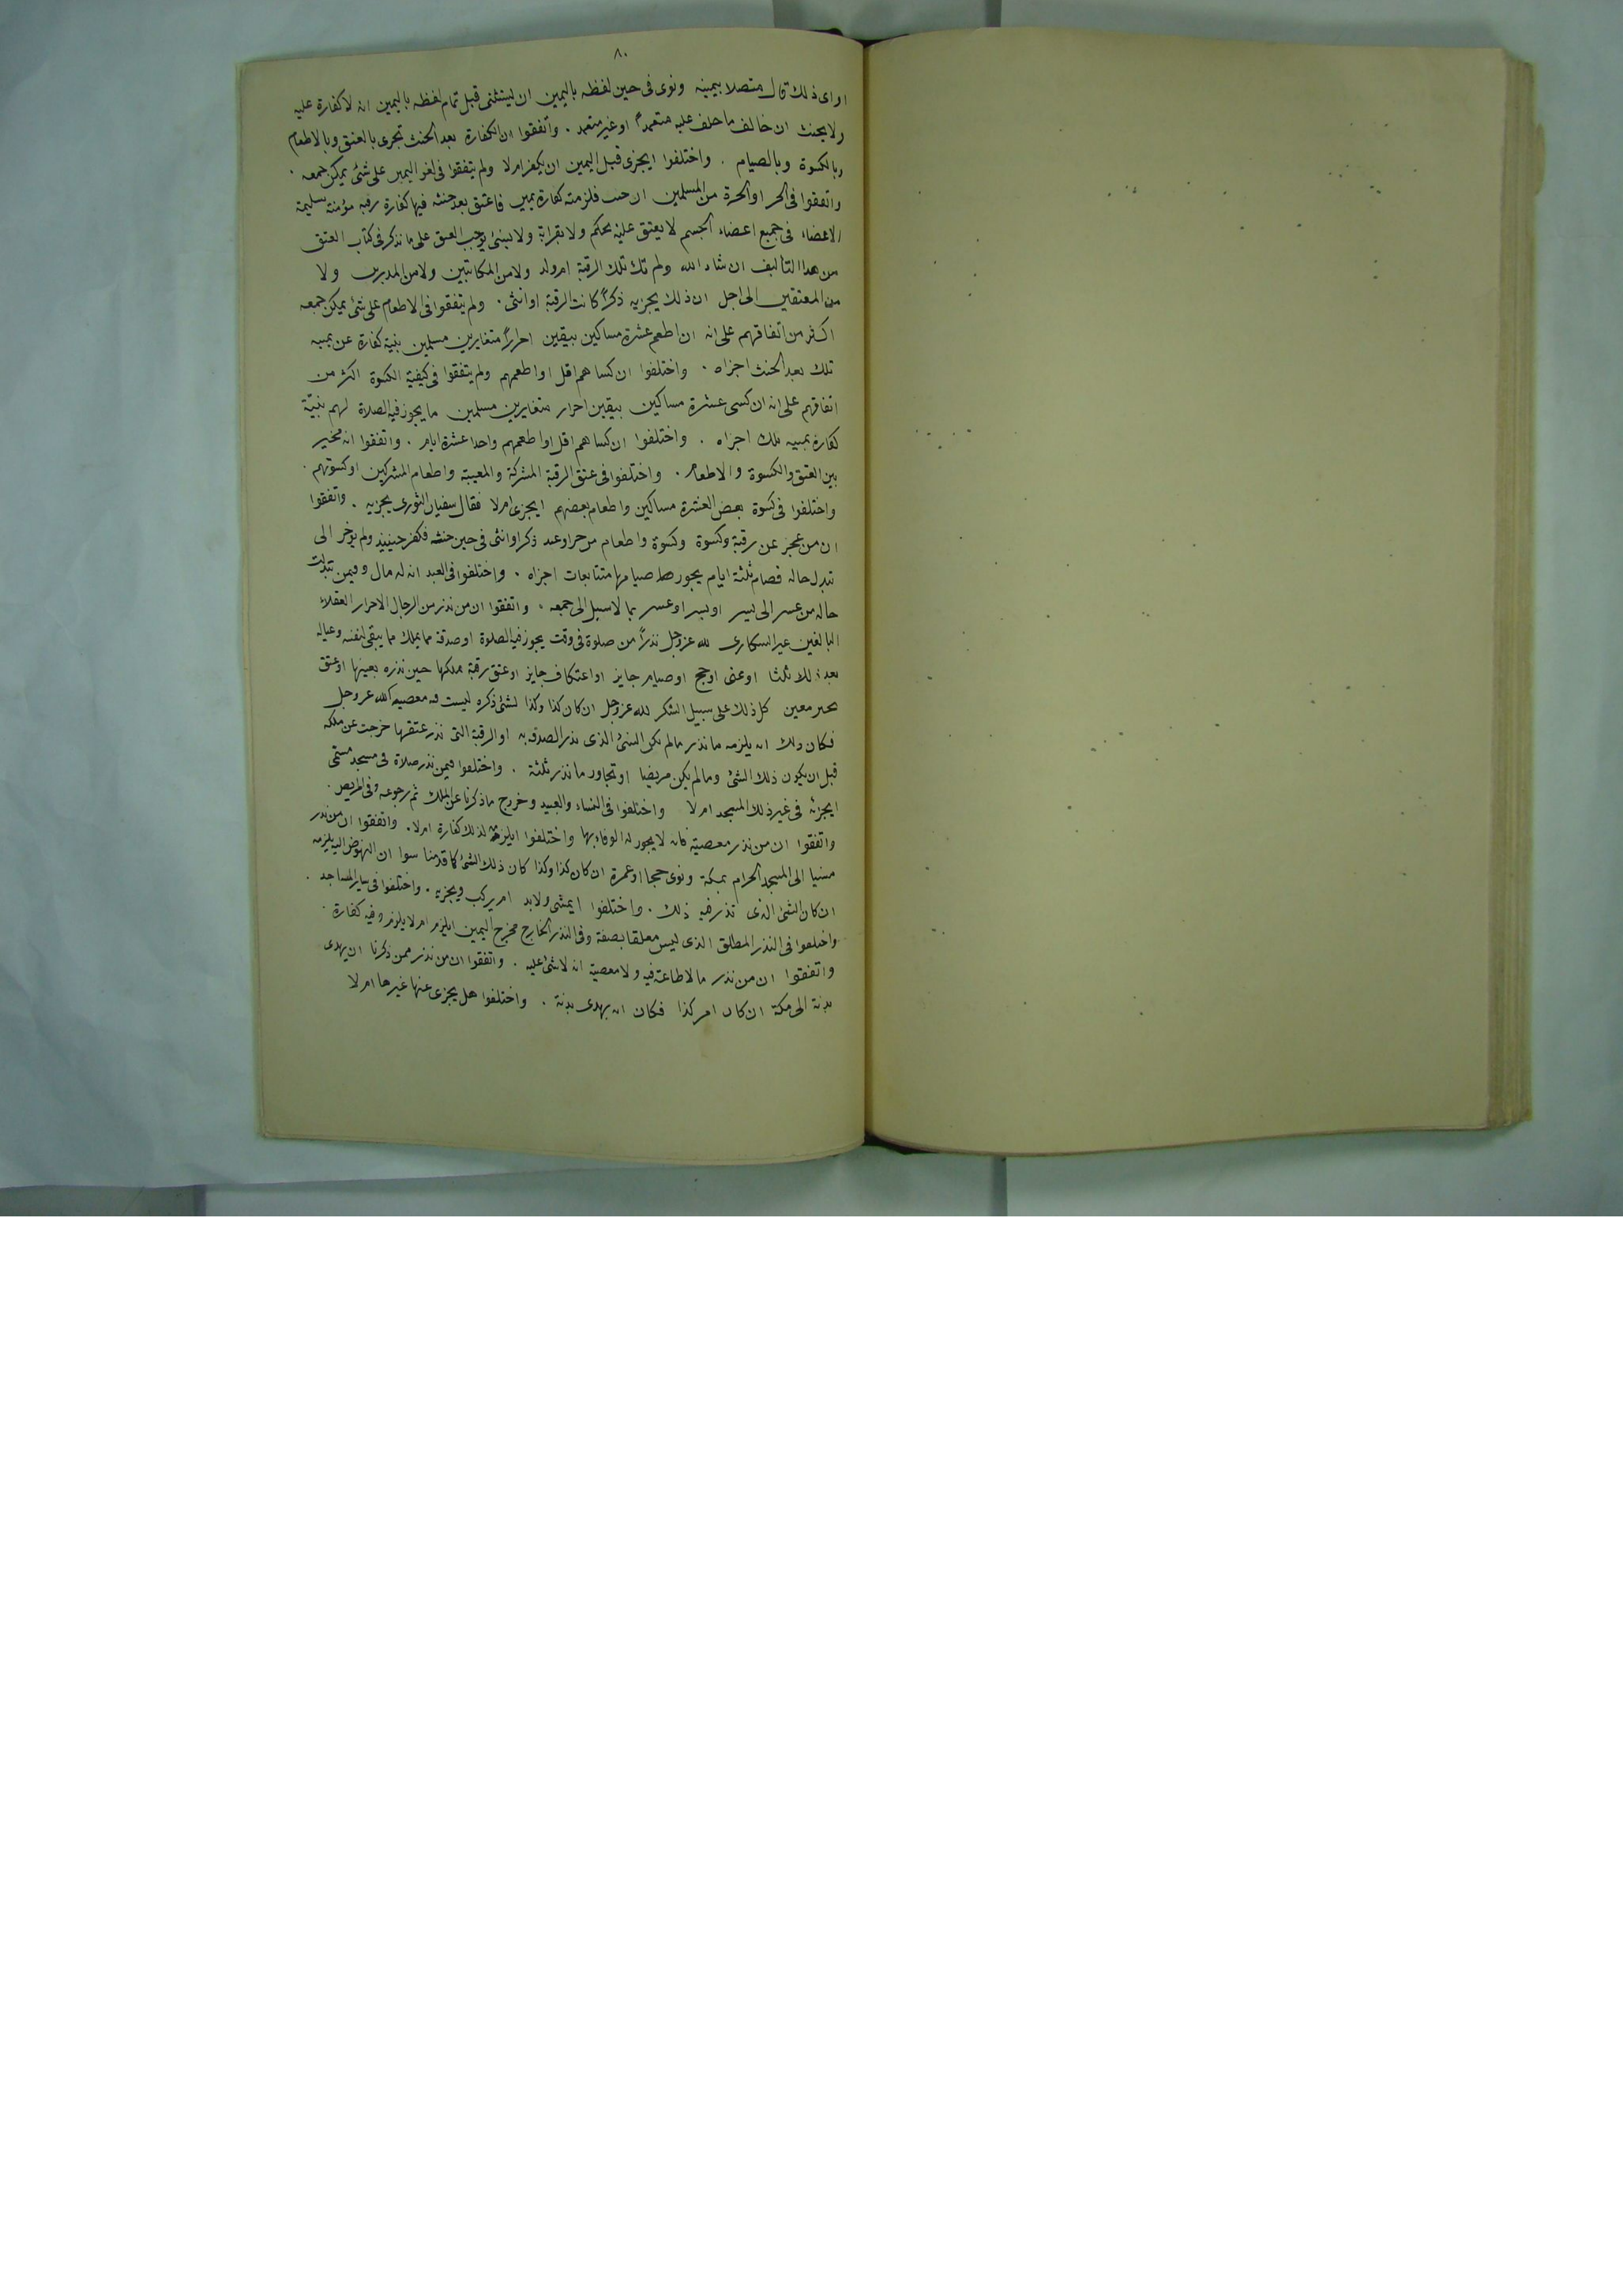 ٨٠
او اى ذلك قال متصلا بيمينه ونوى فى حين لفظه باليمين ان يستثنى قبل تمام لفظه باليمين انه لا كفارة عليه
ولا يحنث ان خالف ما حلف عليه متعمدا او غير متعمد . واتفقوا ان الكفارة بعد الحنث تجزى بالعتق وبالاطعام
وبالكسوة وبالصيام . واختلفوا ايجزى قبل اليمين ان يكفر ام لا ولم يتفقوا فى لغو اليمين على شئ يمكن جمعه .
واتفقوا فى الحر او الحرة من المسلمين ان حنث فلزمته كفارة يمين فاعتق بعد حنثه فيها كفارة رقبة مؤمنة سليمة
الاعضاء فى جميع اعضاء الجسم لا يعتق عليه بحكم ولا بقرابة ولا بشئ يوجب العتق على ما نذكر فى كتاب العتق
من هذا التاليف ان شاء الله ولم تك تلك الرقبة ام ولد ولا من المكاتبين ولا من المدبرين ولا
من المعتقين الى اجل ان ذلك يجزيه ذكرا كانت الرقبة او انثى . ولم يتفقوا فى الاطعام على شئ يمكن جمعه
اكثر من اتفاقهم على انه ان اطعم عشرة مساكين بيقين احرارا متغايرين مسلمين بنية كفارة عن يمينه
تلك بعد الحنث اجزاه . واختلفوا ان كساهم اقل او اطعمهم ولم يتفقوا فى كيفية الكسوة اكثر من
اتفاقهم على انه ان كسى عشرة مساكين بيقين احرار متغايرين مسلمين ما يجوز فيه الصلاة لهم بنية
كفارة يمينه تلك اجزاه . واختلفوا ان كساهم اقل او اطعمهم واحدا عشرة ايام . واتفقوا انه مخير
بين العتق والكسوة والاطعام . واختلفوا فى عتق الرقبة المشركة والمعيبة واطعام المشركين او كسوتهم .
واختلفوا فى كسوة بعض العشرة مساكين واطعام بعضهم ايجزى ام لا فقال سفيان الثورى يجزيه . واتفقوا
ان من عجز عن رقبة وكسوة وكسوة واطعام من حر او عبد ذكر او انثى فى حين حنثه فكفر حينيذ ولم يوخر الى
تبدل حاله فصام ثلثة ايام يجوز صيامها متتابعات اجزاه . واختلفوا فى العبد انه له مال وفيمن تبدلت
حاله من عسر الى يسر او يسر او عسر بما لا سبيل الى جمعه . واتفقوا ان من نذر من الرجال الاحرار العقلاء
البالغين غير السكارى لله عز وجل نذرا من صلوة فى وقت يجوز فيه الصلوة او صدقة مما يملك مما يبقى لنفسه وعياله
بعده او حج او صيام جايز او اعتكاف جايز او عتق رقبة يملكها حين نذره بعينها او عتق
معين كل ذلك على سبيل الشكر لله عز وجل ان كان كذا وكذا لشئ ذكره ليست فيه معصية لله عز وجل
فكان ذلك انه يلزمه ما نذر ما لم يكن الشئ الذى نذر الصدقة به او الرقبة التى نذر عتقها خرجت عن ملكه
قبل ان يكون ذلك الشئ وما لم يكن مريضا او تجاوز ما نذر ثلثه . واختلفوا فيمن نذر صلاة فى مسجد مسمى
ايجزئه فى غير ذلك المسجد ام لا واختلفوا فى النساء والعبيد وخروج ما ذكرنا عن الملك ثم رجوعه وفى المريض .
واتفقوا ان من نذر معصية فانه لا يجوز له الوفاء بها واختلفوا ايلزمه لذلك كفارة ام لا . واتفقوا ان من نذر
مشيا الى المسجد الحرام بمكة ونوى حجا او عمرة ان كان كذا وكذا كان ذلك الشئ كما قدمنا سوا ان النهوض اليه يلزمه
ان كان الشئ الذى نذر فيه ذلك . واختلفوا ايمشى ولا بد ام يركب ويجزيه . واختلفوا فى ساير المساجد .
واختلفوا فى النذر المطلق الذى ليس معلقا بصفة وفى النذر الخارج مخرج اليمين ايلزم ام لا يلزم وفيه كفارة .
واتفقوا ان من نذر ما لا طاعة فيه ولا معصية انه لا شئ عليه . واتفقوا ان من نذر ممن ذكرنا ان يهدى
بدنة الى مكة ان كان امر كذا فكان انه يهدى بدنة . واختلفوا هل يجزى عنها غيرها ام لا